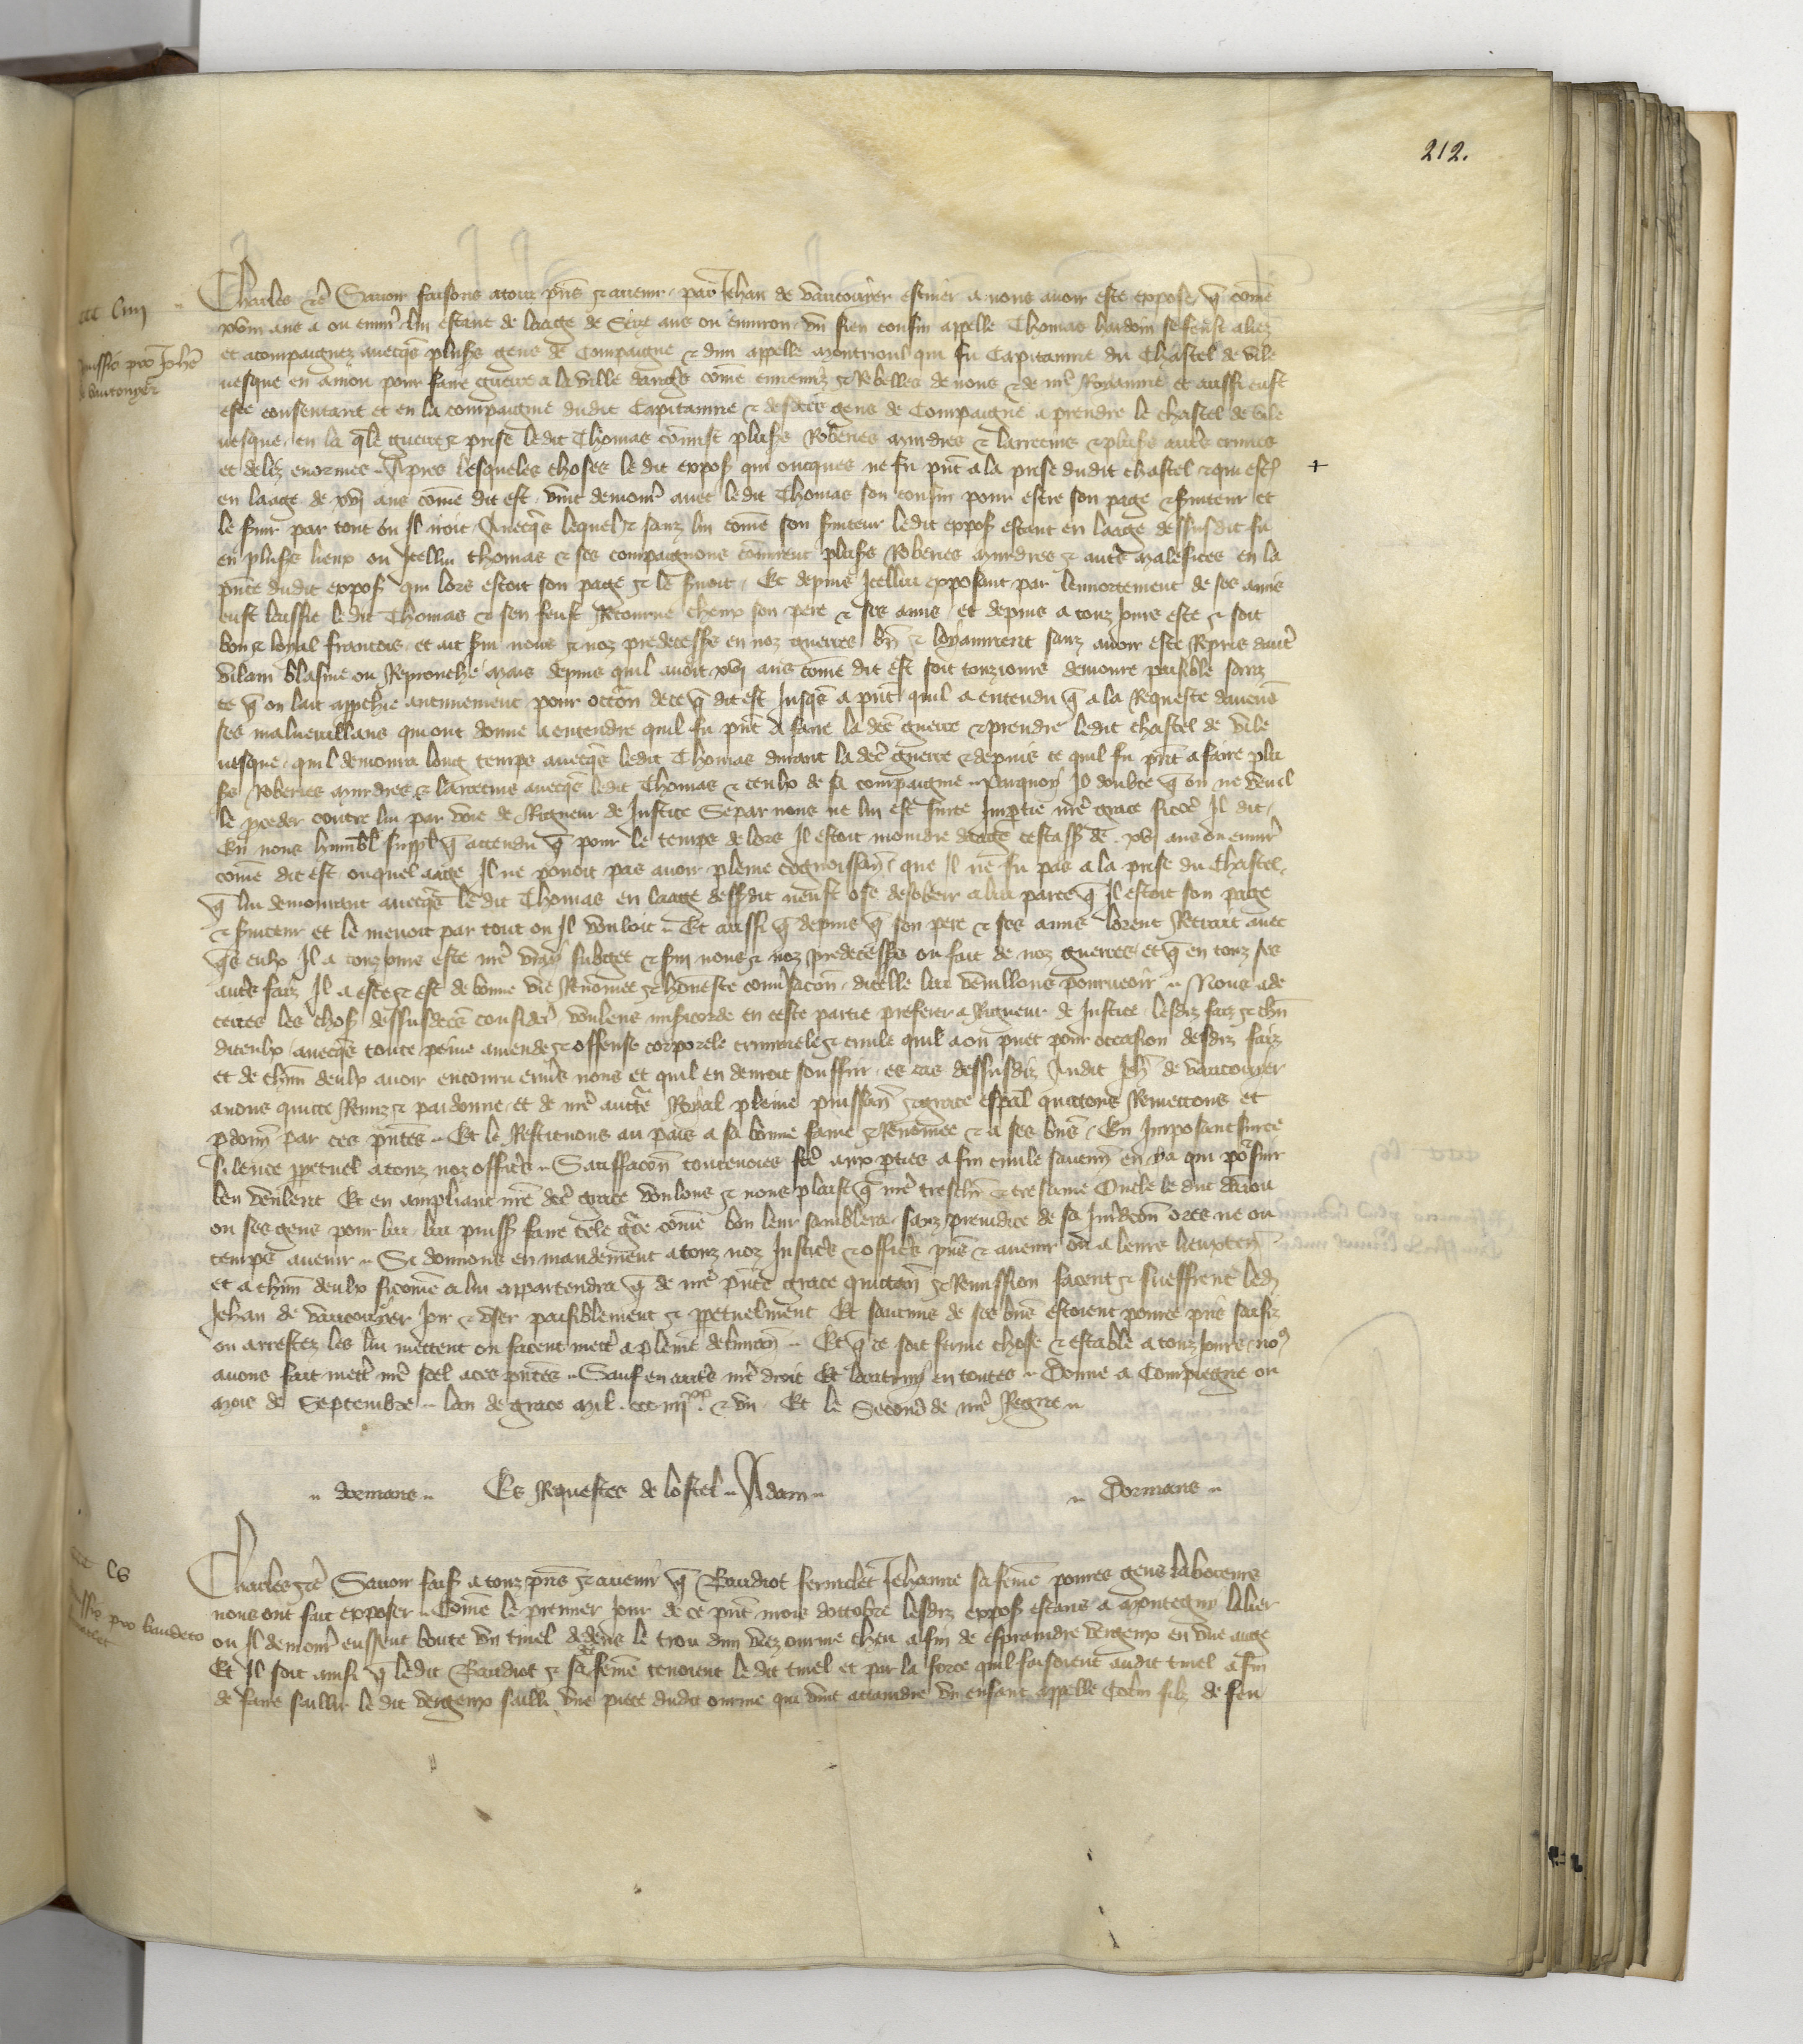 212.
ccc liiij
Charles etc Savoir faisons a touz pñs et avenir par Jehan de Vautouyer escuier a nous avoir este expose q̃ cõme
xviij ans a ou envirõ lui estant de laage de Seize ans ou environ un sien cousin appelle Thomas hardoin se feust aliez
et acompaignez avecqs plusrs gens de Compaigne et dun appelle qui fu Capitainne du Chastel de Vile
vesque en anjou pour faire guerre a la ville dangrs cõme ennemiz et Rebelles de nous et de nrẽ Royaume et aussi eust
este consentant et en la compaignie dudit Capitaine et desdctes gens de Compaigne a prendre le chastel de Vile
vesque en la qle guerre et prise ledit Thomas cõmist plusrs Roberies murdres et larrecins et plusrs autrs crimes
et deliz enormes Apres lesqueles choses le dit expos qui oncques ne fu pñt a la prise dudit chastel et qui est
en laage de xvj ans cõme dit est vint demourr avec ledit Thomas son cousin pour estre son page et srviteur et
le srvir par tout ou Il iroit Avecqs lequel et sanz lui cõme son srviteur ledit expos estant en laage dessusdit fu
en plusrs lieux ou Icellui thomas et ses compaignons cõmirent plusrs Roberies murdres et autrs malefices en la
pñce dudit expos qui lors estoit son page et le srvoit Et depuis Icellui exposant par lennortement de ses amis
eust laissie ledit Thomas et sen feust Retourne cheux son pere et ses amis et depuis a touz jours este et soit
bon et loyal francois et ait srvi nous et noz predecessrs en noz guerres bñ et loyaument sanz avoir este Repris dautr
vilain blasme ou Reprouche Mais depuis quil avoit xvj ans cõme dit est soit touzjours demoure paisible sanz
ce q̃ on lait appchie aucunement pour occõn de ce q̃ dit est Jusqs a pñt quil a entendu q̃ a la Requeste daucuns
ses malveuillans qui ont donne a entendre quil fu pñt a faire la dcẽ guerre et prendre ledit chastel de Vile
vesque quil demoura long temps avecqs ledit Thomas durant la dcẽ guerre et depuis et quil fu pñt a faire plu
srs Roberies murdres et larrecins avecqs ledit Thomas et ceulx de sa compaignie Parquoy Il doubte q̃ on ne vueil
le pceder contre lui par voie de Rigueur de Justice Se par nous ne lui est sur ce Impartie nrẽ grace sicõe Il dit
En nous humbl suppl q̃ attendu q̃ pour le temps de lors Il estoit moindre daage cestass de xvj ans ou envirõ
cõme dit est ouquel aage Il ne povoit pas avoir pleine cognoissanc que Il ne fu pas a la prise du Chastel
q̃ lui demourant avecqs ledit Thomas en laage dessdit neust ose desobeir a lui parce q̃ Il estoit son page
et srviteur et le menoit par tout ou Il vouloit Et aussi q̃ depuis q̃ son pere et ses amis lorent Retrait avec
qs eulx Il a touzjours este nrẽ vray subget et srvi nous et noz predecessrs ou fait de noz guerres et q̃ en touz ses
autrs faiz Il a este et est de bonne vie Renõmee et hõneste convrsacõn dicelle lui vueillons pourveoir Nous ade
certes les choss dessusdctes considerẽ voulens misericorde en ceste partie preferer a Rigueur de Justice lesdiz faiz et chñ
diceulx avecqs toute peine amende et offense corporele criminele et civile quil a ou puet pour occasion desdiz faiz
et de chñ deulx avoir encouru envrs nous et quil en devroit souffrir es cas dessusdiz Audit Jehñ de Vautouyer
avons quicte Remiz et pardonne et de nrẽ auctẽ Royal pleine puissanc et grace espal quictons Remettons et
pdonn par ces pñtes Et le Restituons au pais a sa bonne fame et Renõmee et a ses biens En Imposant sur ce
silence ppetuel a touz noz officrs Satisfacõn toutevoies fctẽ aux pties a fin civile saucuñ en y a qui porsuir
len veulent Et en ampliant nrẽ dcẽ grace voulons et nous plaist q̃ nrẽ treschr et tresame Oncle le duc danjou
ou ses gens pour lui lui puiss faire tele grce cõme bon leur semblera sanz preiudice de sa Juridicõn ores ne ou
temps avenir Si donnons en mandement a touz noz Justicrs et officrs pñs et avenir ou a leurs lieuxten
et a chñ deulx sicõme a lui appartendra q̃ de nrẽ pñte grace quittanc et Remission facent et sueffrent ledit
Jehan de Vautouyer Joir et user paisiblement et ppetuelment Et saucuns de ses biens estoient pource pris saisiz
ou arrestez les lui mettent ou facent mettr a pleine delivranc Et q̃ ce soit ferme chose et estable a touz jours no9
avons fait mettr nrẽ scel a ces pñtes Sauf en autrs nrẽ droit Et lautruy en toutes Donne a Compiegne ou
mois de Septembre lan de grace mil ccc iiijxx et un Et le Second de nrẽ Regne
dormans Es Requestes de lostel Adam Dormans
Charles etc Savoir fais a touz pñs et avenir q̃ Baudiot Jehanne sa feme povres gens laboreurs
nous ont fait exposer Cõme le premier Jour de ce pñt mois doctobre lesdiz expos estans a
ou Il demourr eussent boute un tinel dedens le trou dun viez ourme cheu a fin de espraindre vergeux en une auge
Et Il soit ainsi q̃ ledit Baudiot et sa dcẽ feme tenoient le dit tinel et par la force quil faisoient audit tinel a fin
de faire saillir le dit vergeux sailli une piece dudit ourme qui vint attaindre un enfant appelle Colin filz de feu